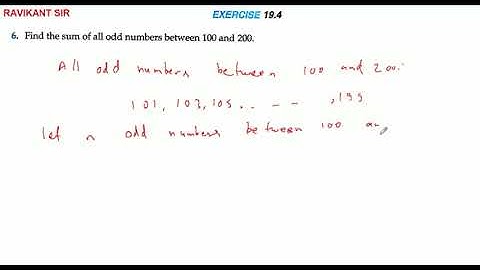 RAVIKANT SIR
EXERCISE 19.4
6. Find the sum of all odd numbers between 100 and 200.
All odd numbers between 100 and 200:
101, 103, 105.. - - , 199
let n odd numbers between 100 an